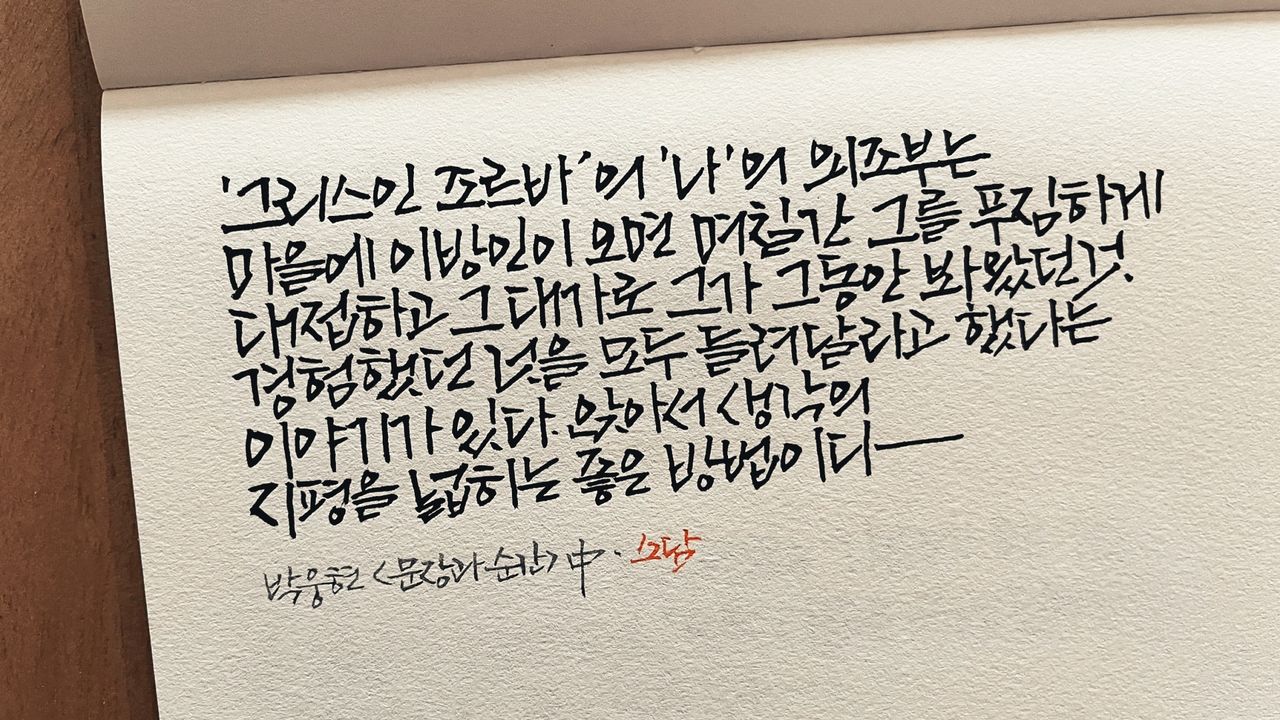 '그리스인 조르바'의 '나'의 외조부는
마을에 이방인이 오면 며칠간 그를 푸짐하게
대접하고 그 대가로 그가 그동안 봐 왔던 것.
경험했던 것을 모두 들려달라고 했다는
이야기가 있다. 앉아서 생각의
지평을 넓히는 좋은 방법이다
박웅현 <문장과 순간> 中. 소담